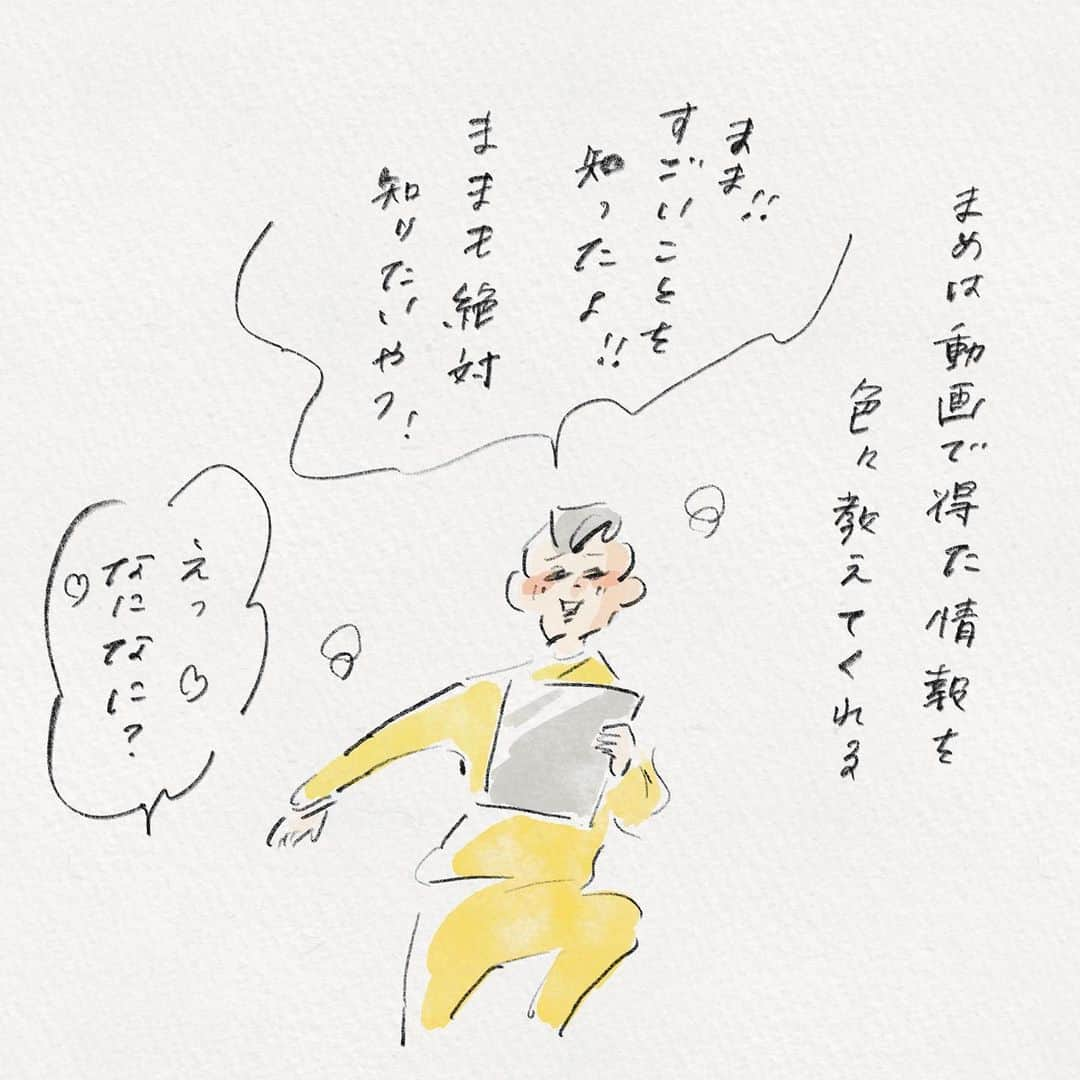 まめは動画で得た情報を
色々教えてくれる
まま!!
すごいことを
知ったよ!!
ままも絶対
知りたいやつ!
えっ
なになに?